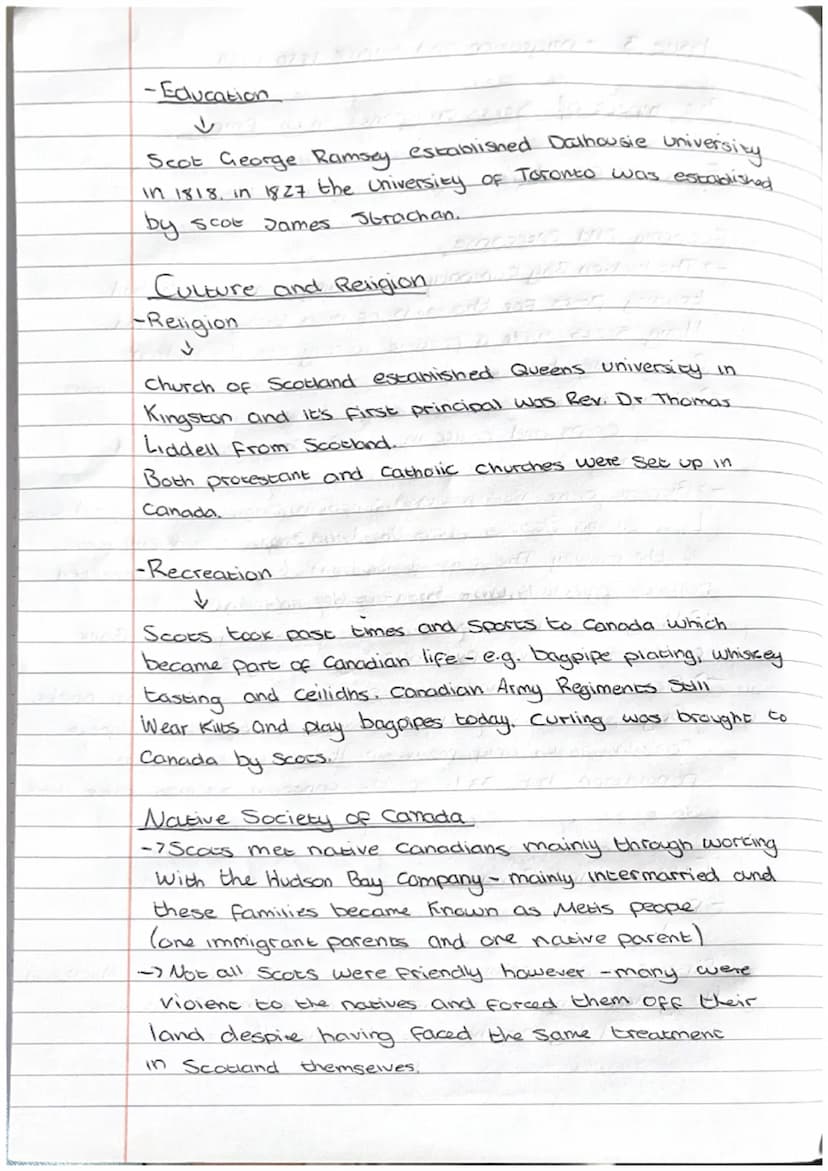 - Education
↓
Scot George Ramsey established Dalhousie university
in 1818. in 1827 the University of Toronto was established
by scot James Strachan.
Culture and Religion
-Religion
↓
Church of Scotland established Queens university in
Kingston and it's first principal was Rev. Dr Thomas
Liddell from Scotland.
Both protestant and Catholic churches were set up in
Canada.
-Recreation
↓
Scots took past times and sports to Canada which
became part of Canadian life - e.g. bagpipe plating, whiskey
tasting and ceilidhs. Canadian Army Regiments still
wear kilts and play bagpipes today. Curling was brought to
Canada by Scots.
Native Society of Canada
-> Scots met native Canadians mainly through working
with the Hudson Bay Company - mainly intermarried and
these families became known as Metis peope
(one immigrant parents and one native parent)
-> Not all Scots were friendly however - many were
violent to the natives and forced them off their
land despite having faced the same treatment
in Scotland themselves.